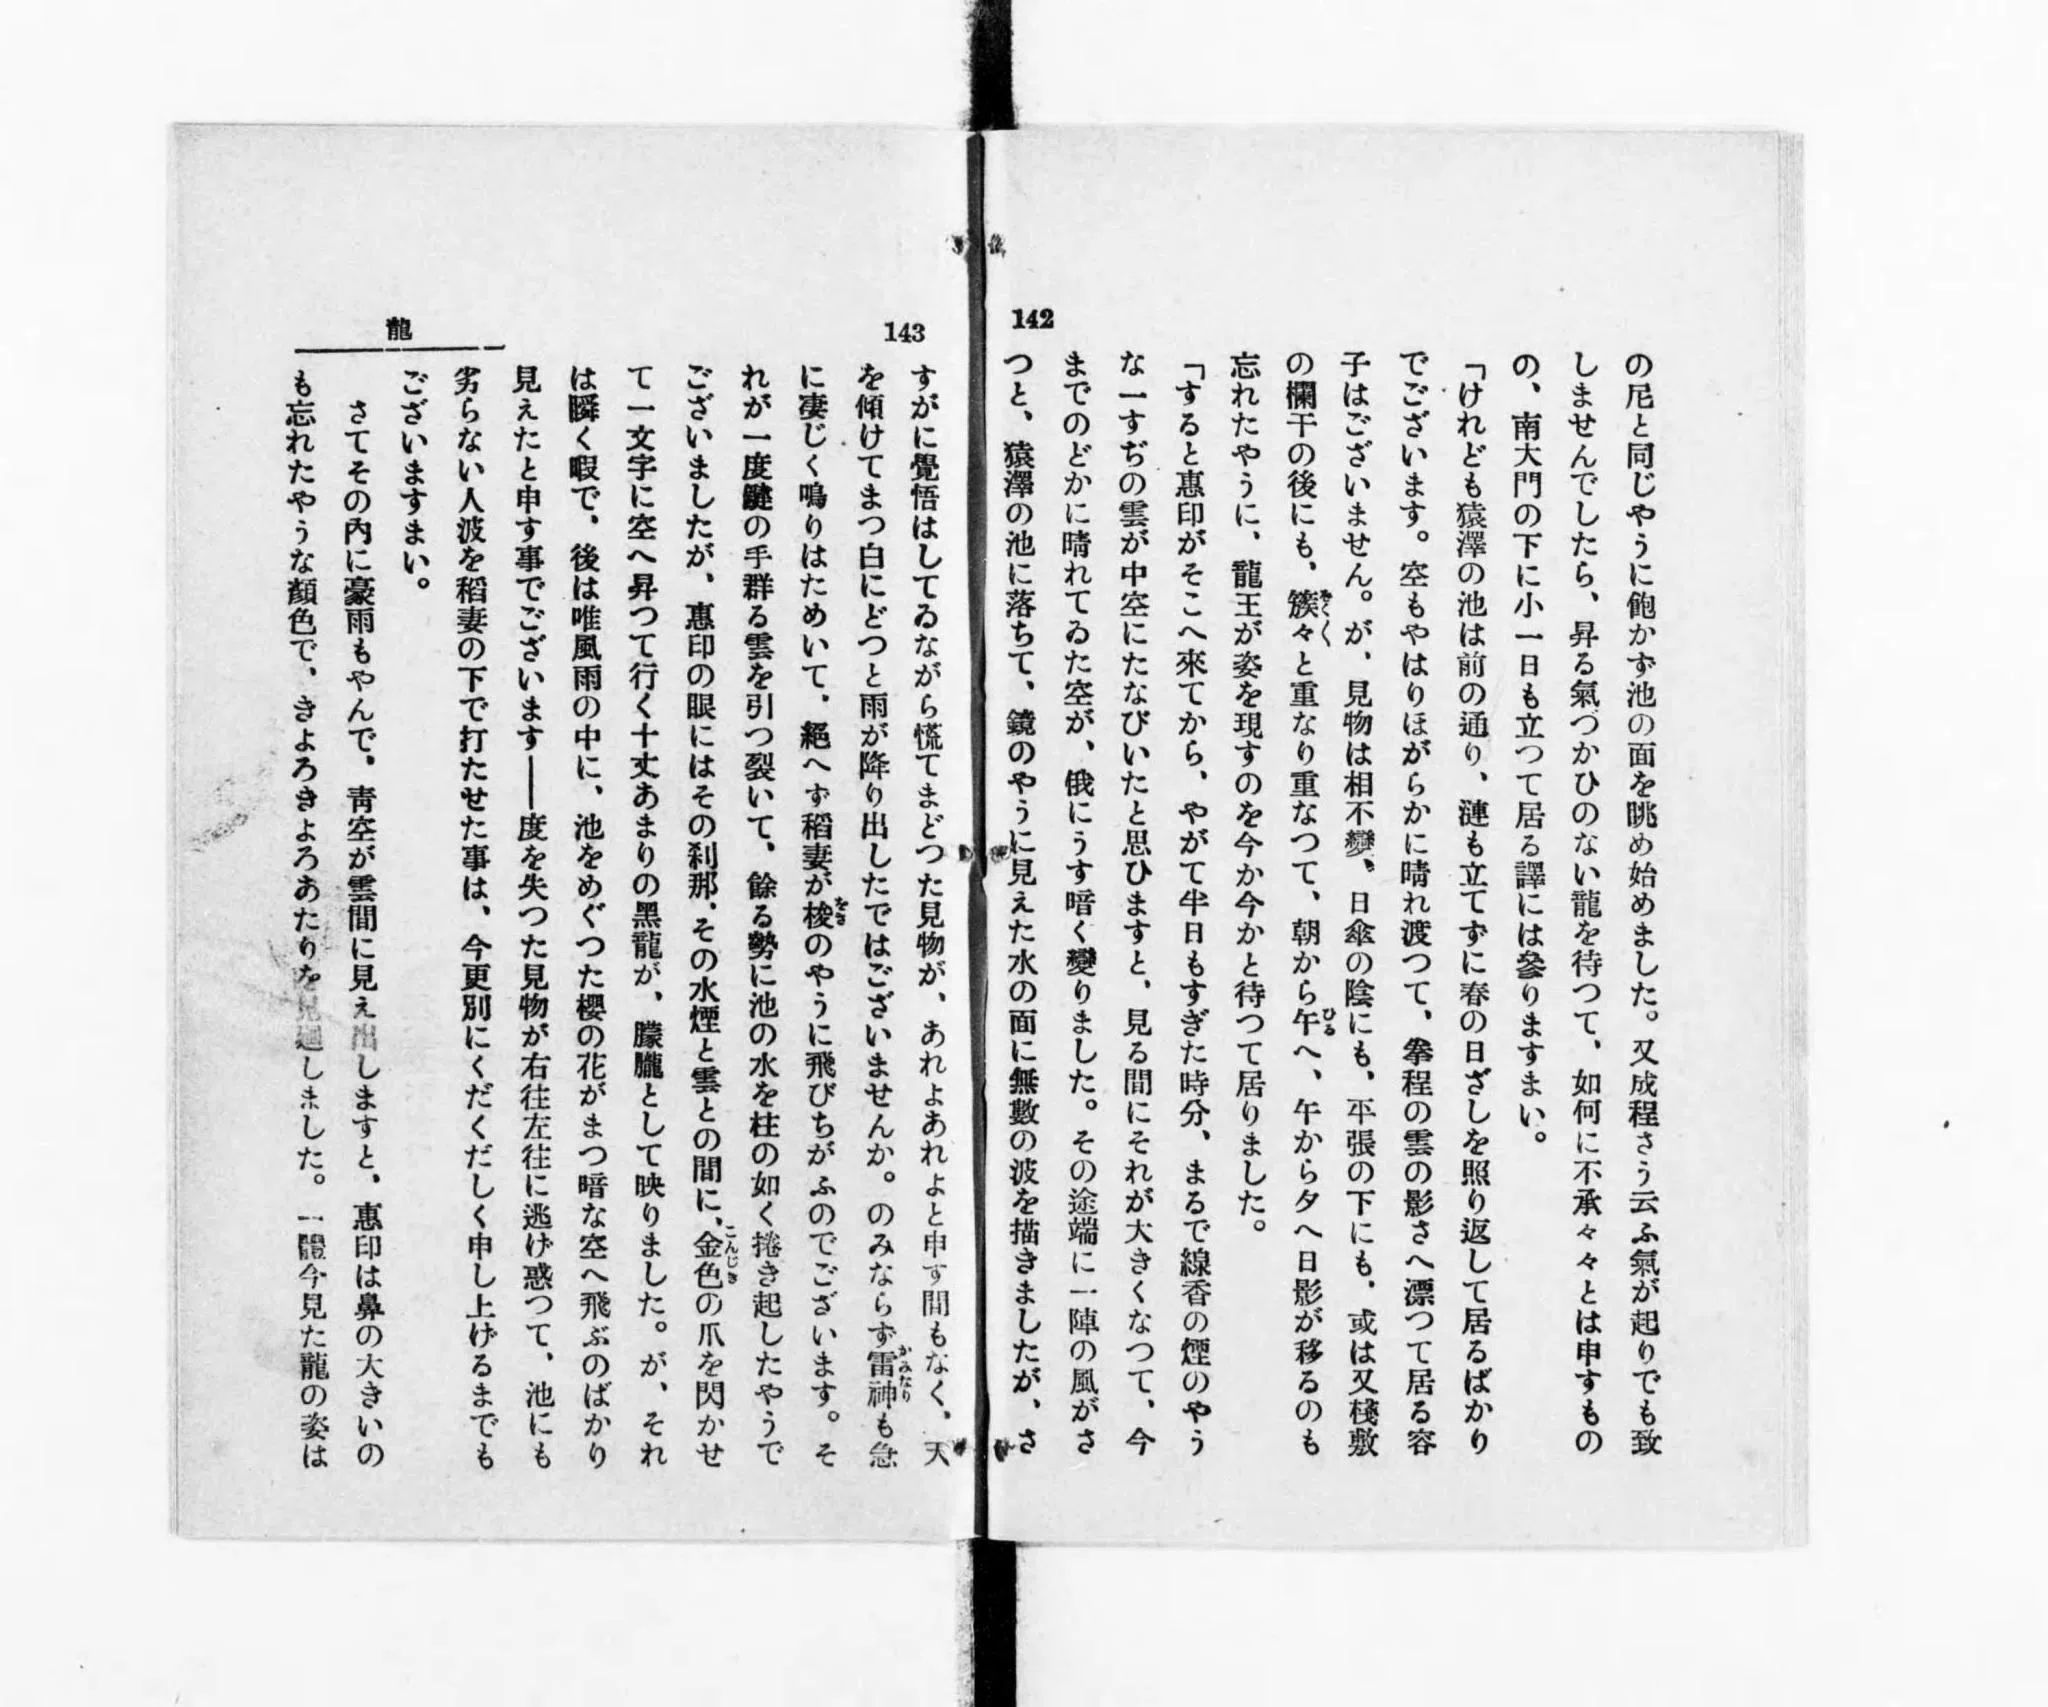 142
の尼と同じやうに飽かず池の面を眺め始めました。又成程さう云ふ氣が起りでも致
しませんでしたら、昇る氣づかひのない龍を待つて、如何に不承々々とは申すもの
の、南大門の下に小一日も立つて居る譯には參りますまい。
「けれども猿澤の池は前の通り、漣も立てずに春の日ざしを照り返して居るばかり
でございます。空もやはりほがらかに晴れ渡つて、拳程の雲の影さへ漂つて居る容
子はございません。が、見物は相不變、日傘の陰にも、平張の下にも、或は又棧敷
の欄干の後にも、簇々と重なり重なつて、朝から午へ、午から夕へ日影が移るのも
忘れたやうに、龍王が姿を現すのを今か今かと待つて居りました。
「すると惠印がそこへ來てから、やがて半日もすぎた時分、まるで線香の煙のやう
な一すぢの雲が中空にたなびいたと思ひますと、見る間にそれが大きくなつて、今
までのどかに晴れてゐた空が、俄にうす暗く變りました。その途端に一陣の風がさ
つと、猿澤の池に落ちて、鏡のやうに見えた水の面に無數の波を描きましたが、さ
143
すがに覺悟はしてゐながら慌てまどつた見物が、あれよあれよと申す間もなく、天
を傾けてまつ白にどつと雨が降り出したではございませんか。のみならず雷神も急
に凄じく鳴りはためいて、絕へず稻妻が梭のやうに飛びちがふのでございます。そ
れが一度鍵の手群る雲を引つ裂いて、餘る勢に池の水を柱の如く捲き起したやうで
ございましたが、惠印の眼にはその刹那、その水煙と雲との間に、金色の爪を閃かせ
て一文字に空へ昇つて行く十丈あまりの黑龍が、朦朧として映りました。が、それ
は瞬く暇で、後は唯風雨の中に、池をめぐつた櫻の花がまつ暗な空へ飛ぶのばかり
見えたと申す事でございます――度を失つた見物が右往左往に逃げ惑つて、池にも
劣らない人波を稻妻の下で打たせた事は、今更別にくだくだしく申し上げるまでも
ございますまい。
さてその內に豪雨もやんで、靑空が雲間に見え出しますと、惠印は鼻の大きいの
も忘れたやうな顏色で、きよろきよろあたりを見廻しました。一體今見た龍の姿は
龍